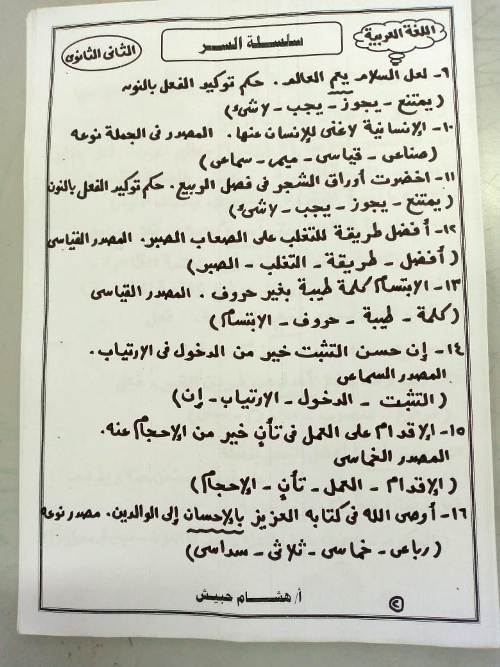 اللغة العربية
سلسلة السر
الثانى الثانوى
٩- لعل السلام يعم العالم. حكم توكيد الفعل بالنون
(يمتنع - يجوز - يجب - لا شىء)
١٠- الإنسانية لا غنى للإنسان عنها. المصدر فى الجملة نوعه
(صناعى - قياسى - ميمى - سماعى)
١١- اخضرت أوراق الشجر فى فصل الربيع. حكم توكيد الفعل بالنون
(يمتنع - يجوز - يجب - لا شىء)
١٢- أفضل طريقة للتغلب على الصعاب الصبر. المصدر القياسى
(أفضل - طريقة - التغلب - الصبر)
١٣- الابتسام كلمة طيبة بغير حروف. المصدر القياسى
(كلمة - طيبة - حروف - الابتسام)
١٤- إن حسن التثبت خير من الدخول فى الارتياب.
المصدر السماعى
(التثبت - الدخول - الارتياب - إن)
١٥- الإقدام على العمل فى تأنٍ خير من الإحجام عنه.
المصدر الخماسى
(الإقدام - العمل - تأنٍ - الإحجام)
١٦- أوصى الله فى كتابه العزيز بالإحسان إلى الوالدين. مصدر نوعه
(رباعى - خماسى - ثلاثى - سداسى)
أ/ هشام حبيش
٢